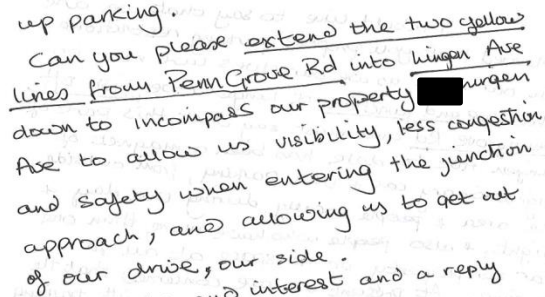 up parking.
Can you please extend the two yellow
lines from Penn Grove Rd into Lingen Ave
down to incompass our property Lingen
Ave to allow us visibility, less congestion
and safety when entering the junction
approach, and allowing us to get out
of our drive, our side.
and interest and a reply